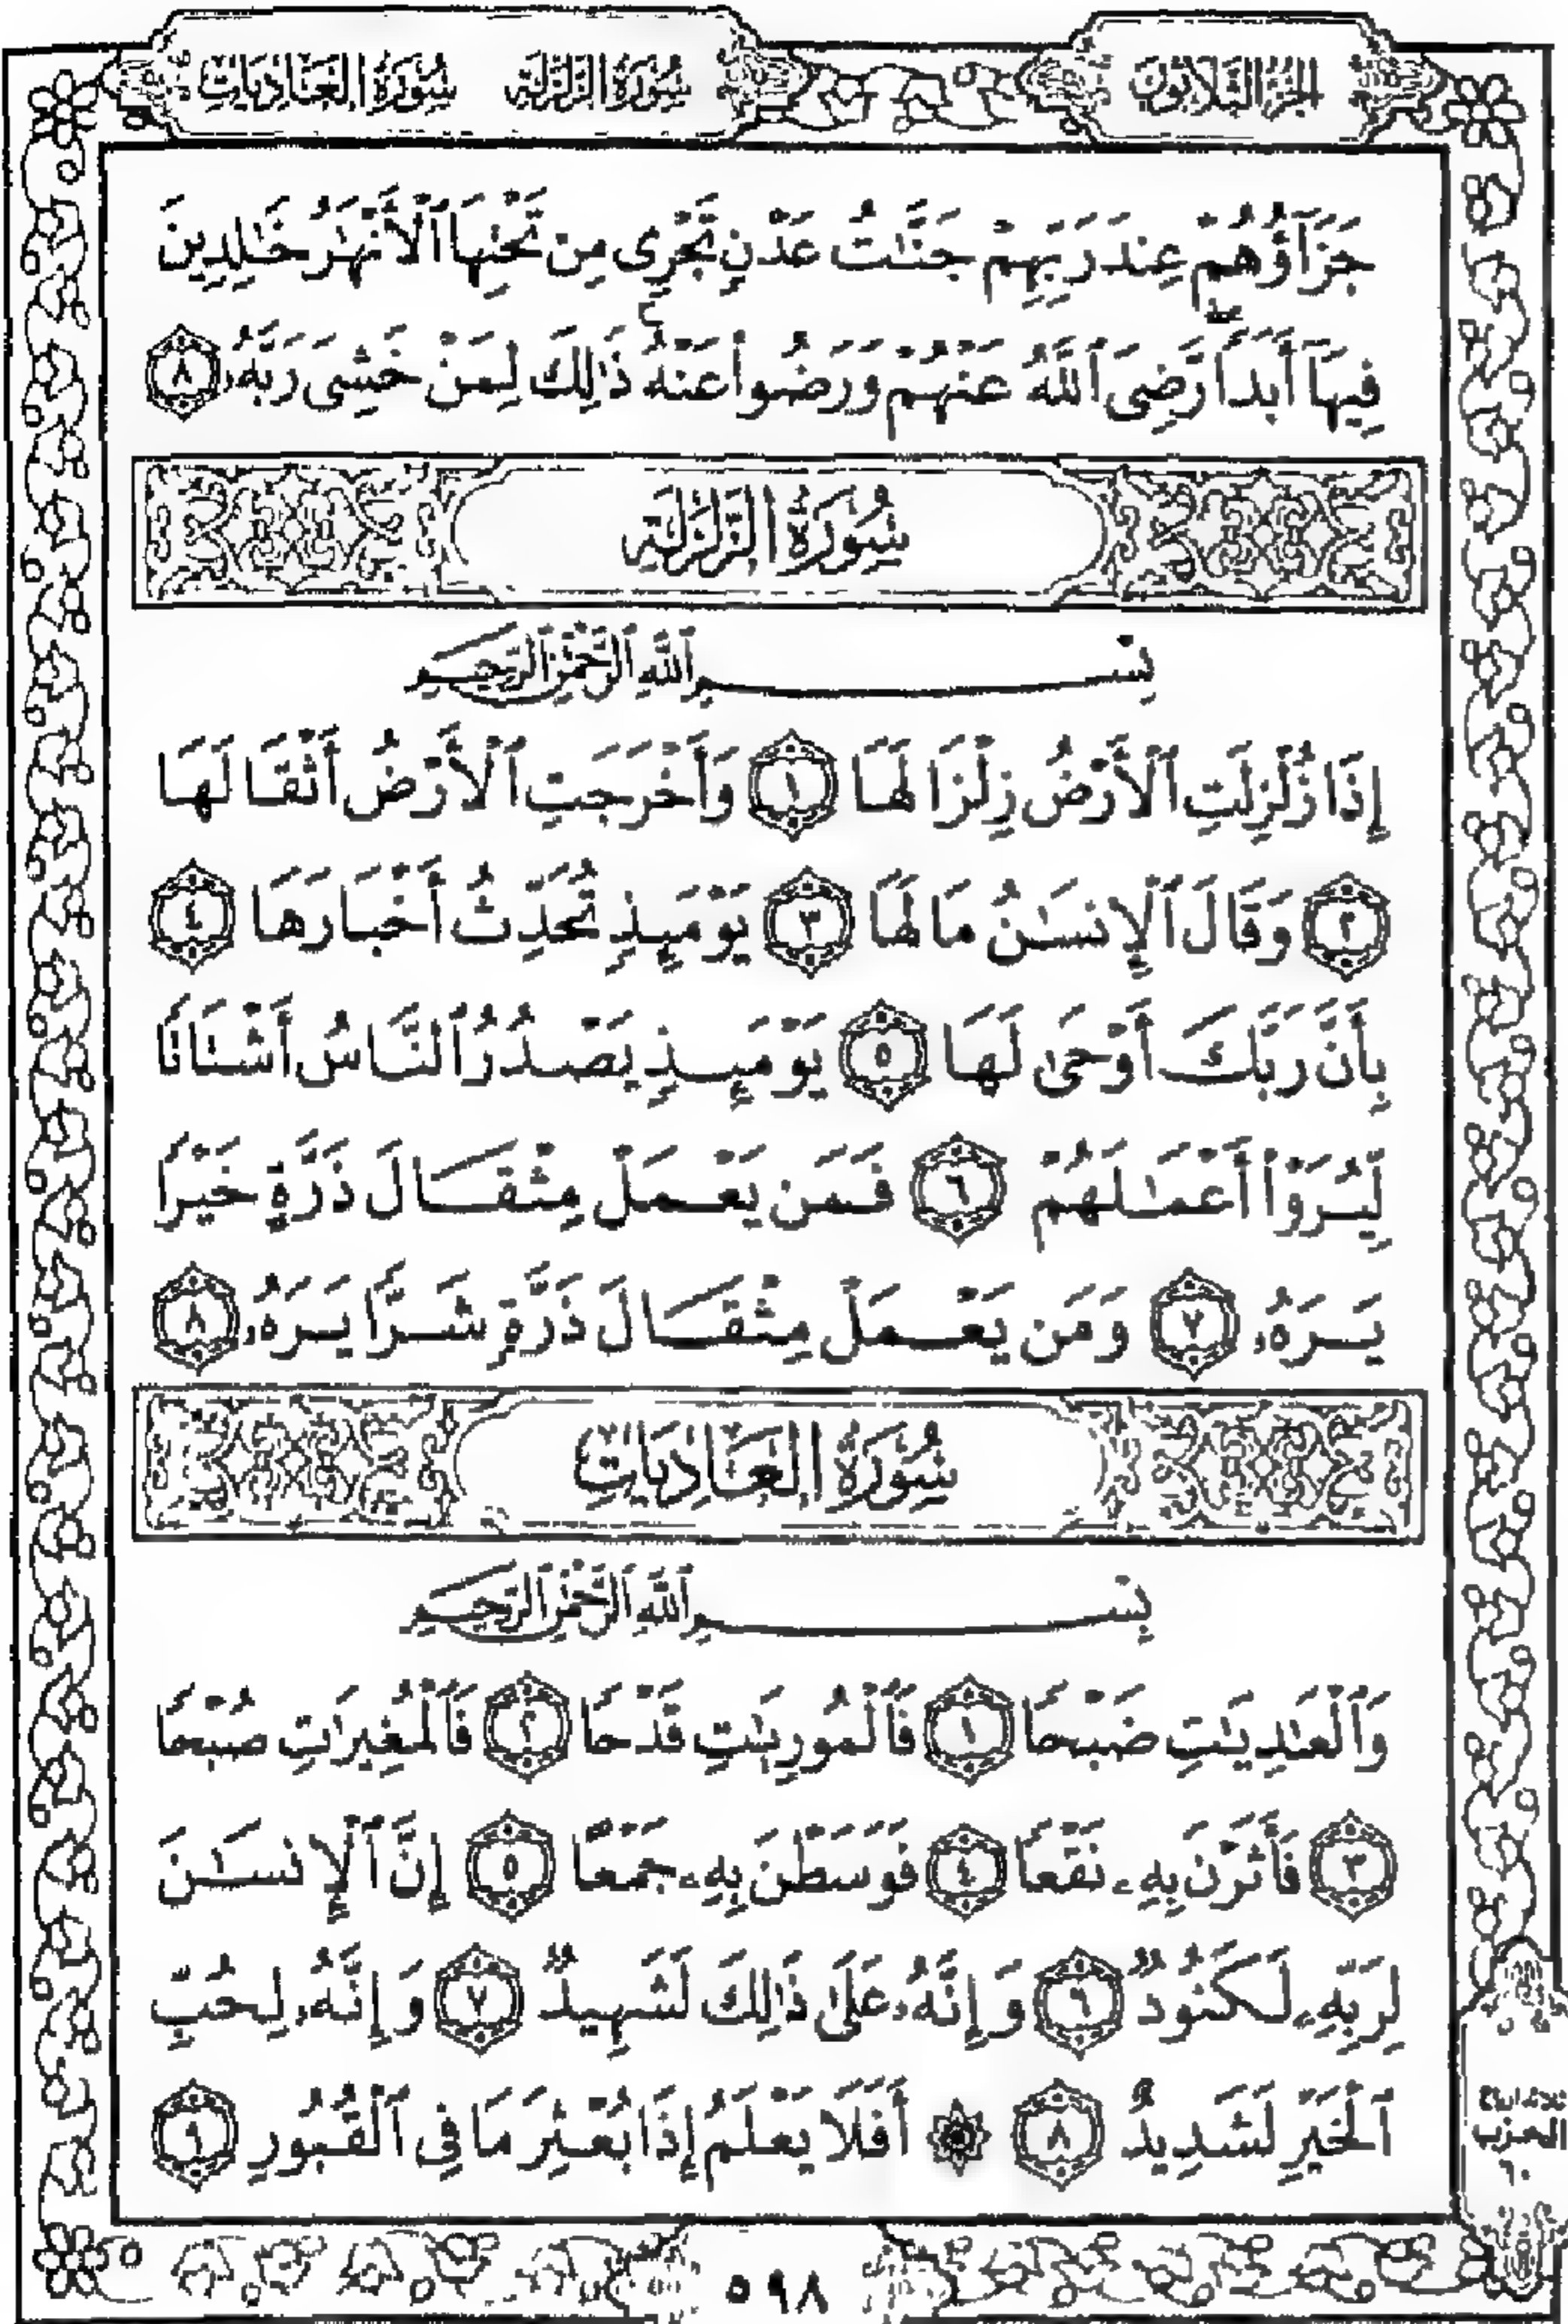 الجزء الثلاثون
سورة الزلزلة سورة العاديات
جَزَآؤُهُمْ عِندَ رَبِّهِمْ جَنَّٰتُ عَدْنٍ تَجْرِى مِن تَحْتِهَا ٱلْأَنْهَٰرُ خَٰلِدِينَ
فِيهَآ أَبَدًا رَّضِىَ ٱللَّهُ عَنْهُمْ وَرَضُوا۟ عَنْهُ ذَٰلِكَ لِمَنْ خَشِىَ رَبَّهُۥ ٨
سُورَةُ الزَّلْزَلَةِ
بِسْمِ ٱللَّهِ ٱلرَّحْمَٰنِ ٱلرَّحِيمِ
إِذَا زُلْزِلَتِ ٱلْأَرْضُ زِلْزَالَهَا ١ وَأَخْرَجَتِ ٱلْأَرْضُ أَثْقَالَهَا
٢ وَقَالَ ٱلْإِنسَٰنُ مَا لَهَا ٣ يَوْمَئِذٍ تُحَدِّثُ أَخْبَارَهَا ٤
بِأَنَّ رَبَّكَ أَوْحَىٰ لَهَا ٥ يَوْمَئِذٍ يَصْدُرُ ٱلنَّاسُ أَشْتَاتًا
لِّيُرَوْا۟ أَعْمَٰلَهُمْ ٦ فَمَن يَعْمَلْ مِثْقَالَ ذَرَّةٍ خَيْرًا
يَرَهُۥ ٧ وَمَن يَعْمَلْ مِثْقَالَ ذَرَّةٍ شَرًّا يَرَهُۥ ٨
سُورَةُ العَادِيَاتِ
بِسْمِ ٱللَّهِ ٱلرَّحْمَٰنِ ٱلرَّحِيمِ
وَٱلْعَٰدِيَٰتِ ضَبْحًا ١ فَٱلْمُورِيَٰتِ قَدْحًا ٢ فَٱلْمُغِيرَٰتِ صُبْحًا
٣ فَأَثَرْنَ بِهِۦ نَقْعًا ٤ فَوَسَطْنَ بِهِۦ جَمْعًا ٥ إِنَّ ٱلْإِنسَٰنَ
لِرَبِّهِۦ لَكَنُودٌ ٦ وَإِنَّهُۥ عَلَىٰ ذَٰلِكَ لَشَهِيدٌ ٧ وَإِنَّهُۥ لِحُبِّ
ٱلْخَيْرِ لَشَدِيدٌ ٨ ۞ أَفَلَا يَعْلَمُ إِذَا بُعْثِرَ مَا فِى ٱلْقُبُورِ ٩
الحزب
٦٠
٥٩٨